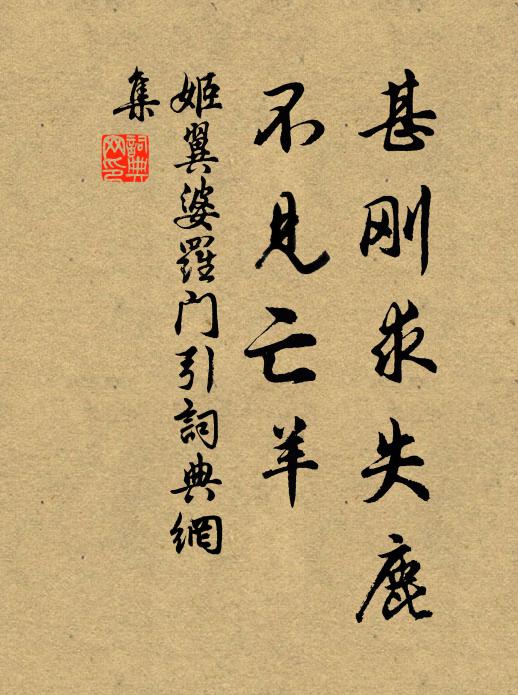 甚刚求失鹿
不见亡羊
姬翼婆羅门引詞典網
集
詞典
网印